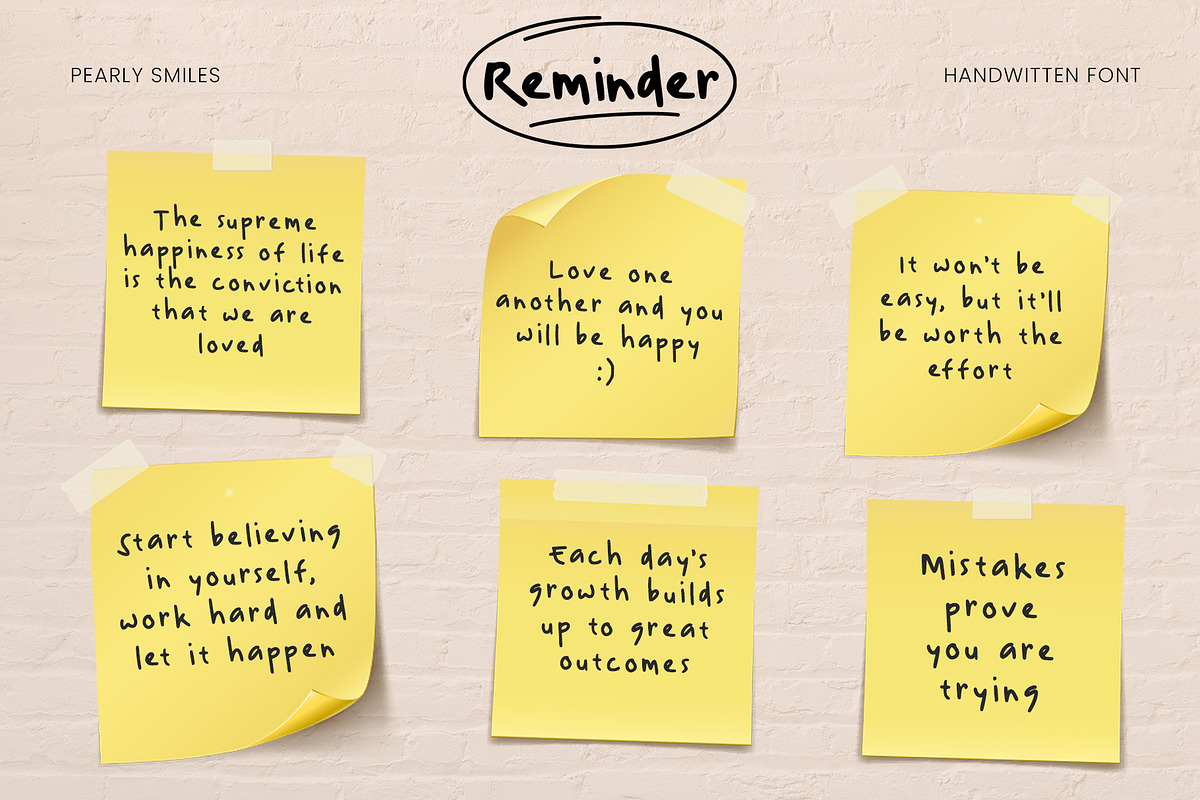 PEARLY SMILES
Reminder
HANDWITTEN FONT
The supreme
happiness of life
is the conviction
that we are
loved
Love one
another and you
will be happy
:)
It won't be
easy, but it'll
be worth the
effort
Start believing
in yourself,
work hard and
let it happen
Each day's
growth builds
up to great
outcomes
Mistakes
prove
you are
trying